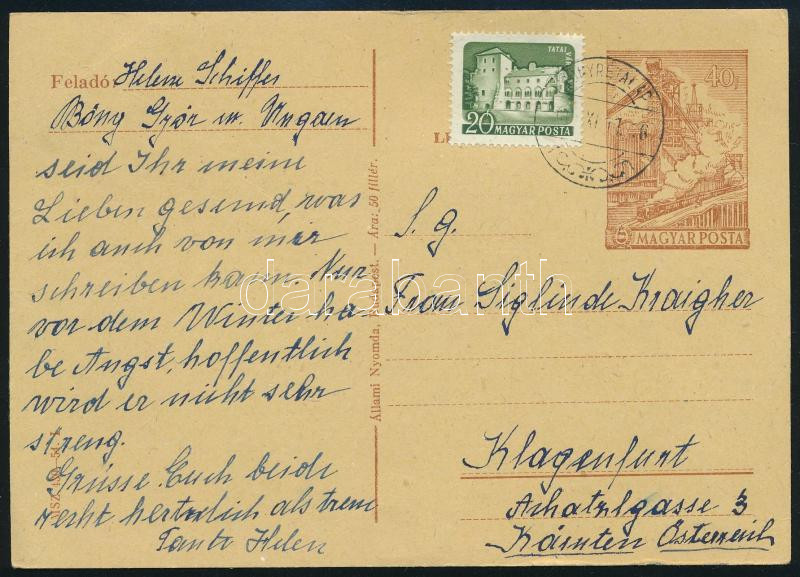 Feladó Helene Schiffer
Bőny Győr m. Ungarn
seid Ihr meine
Lieben gesund, was
ich auch von mir
schreiben kann. Nur
vor dem Winter ha-
be Angst, hoffentlich
wird er nicht sehr
streng.
Grüsse Euch beide
recht herzlich als treue
Tante Helen
Állami Nyomda, Budapest. — Ára: 50 fillér.
TATAI VÁR
20 MAGYAR POSTA
40f
MAGYAR POSTA
S. g.
Frau Siglinde Kraigher
Klagenfurt
3
Kärnten Österreich
darabanth